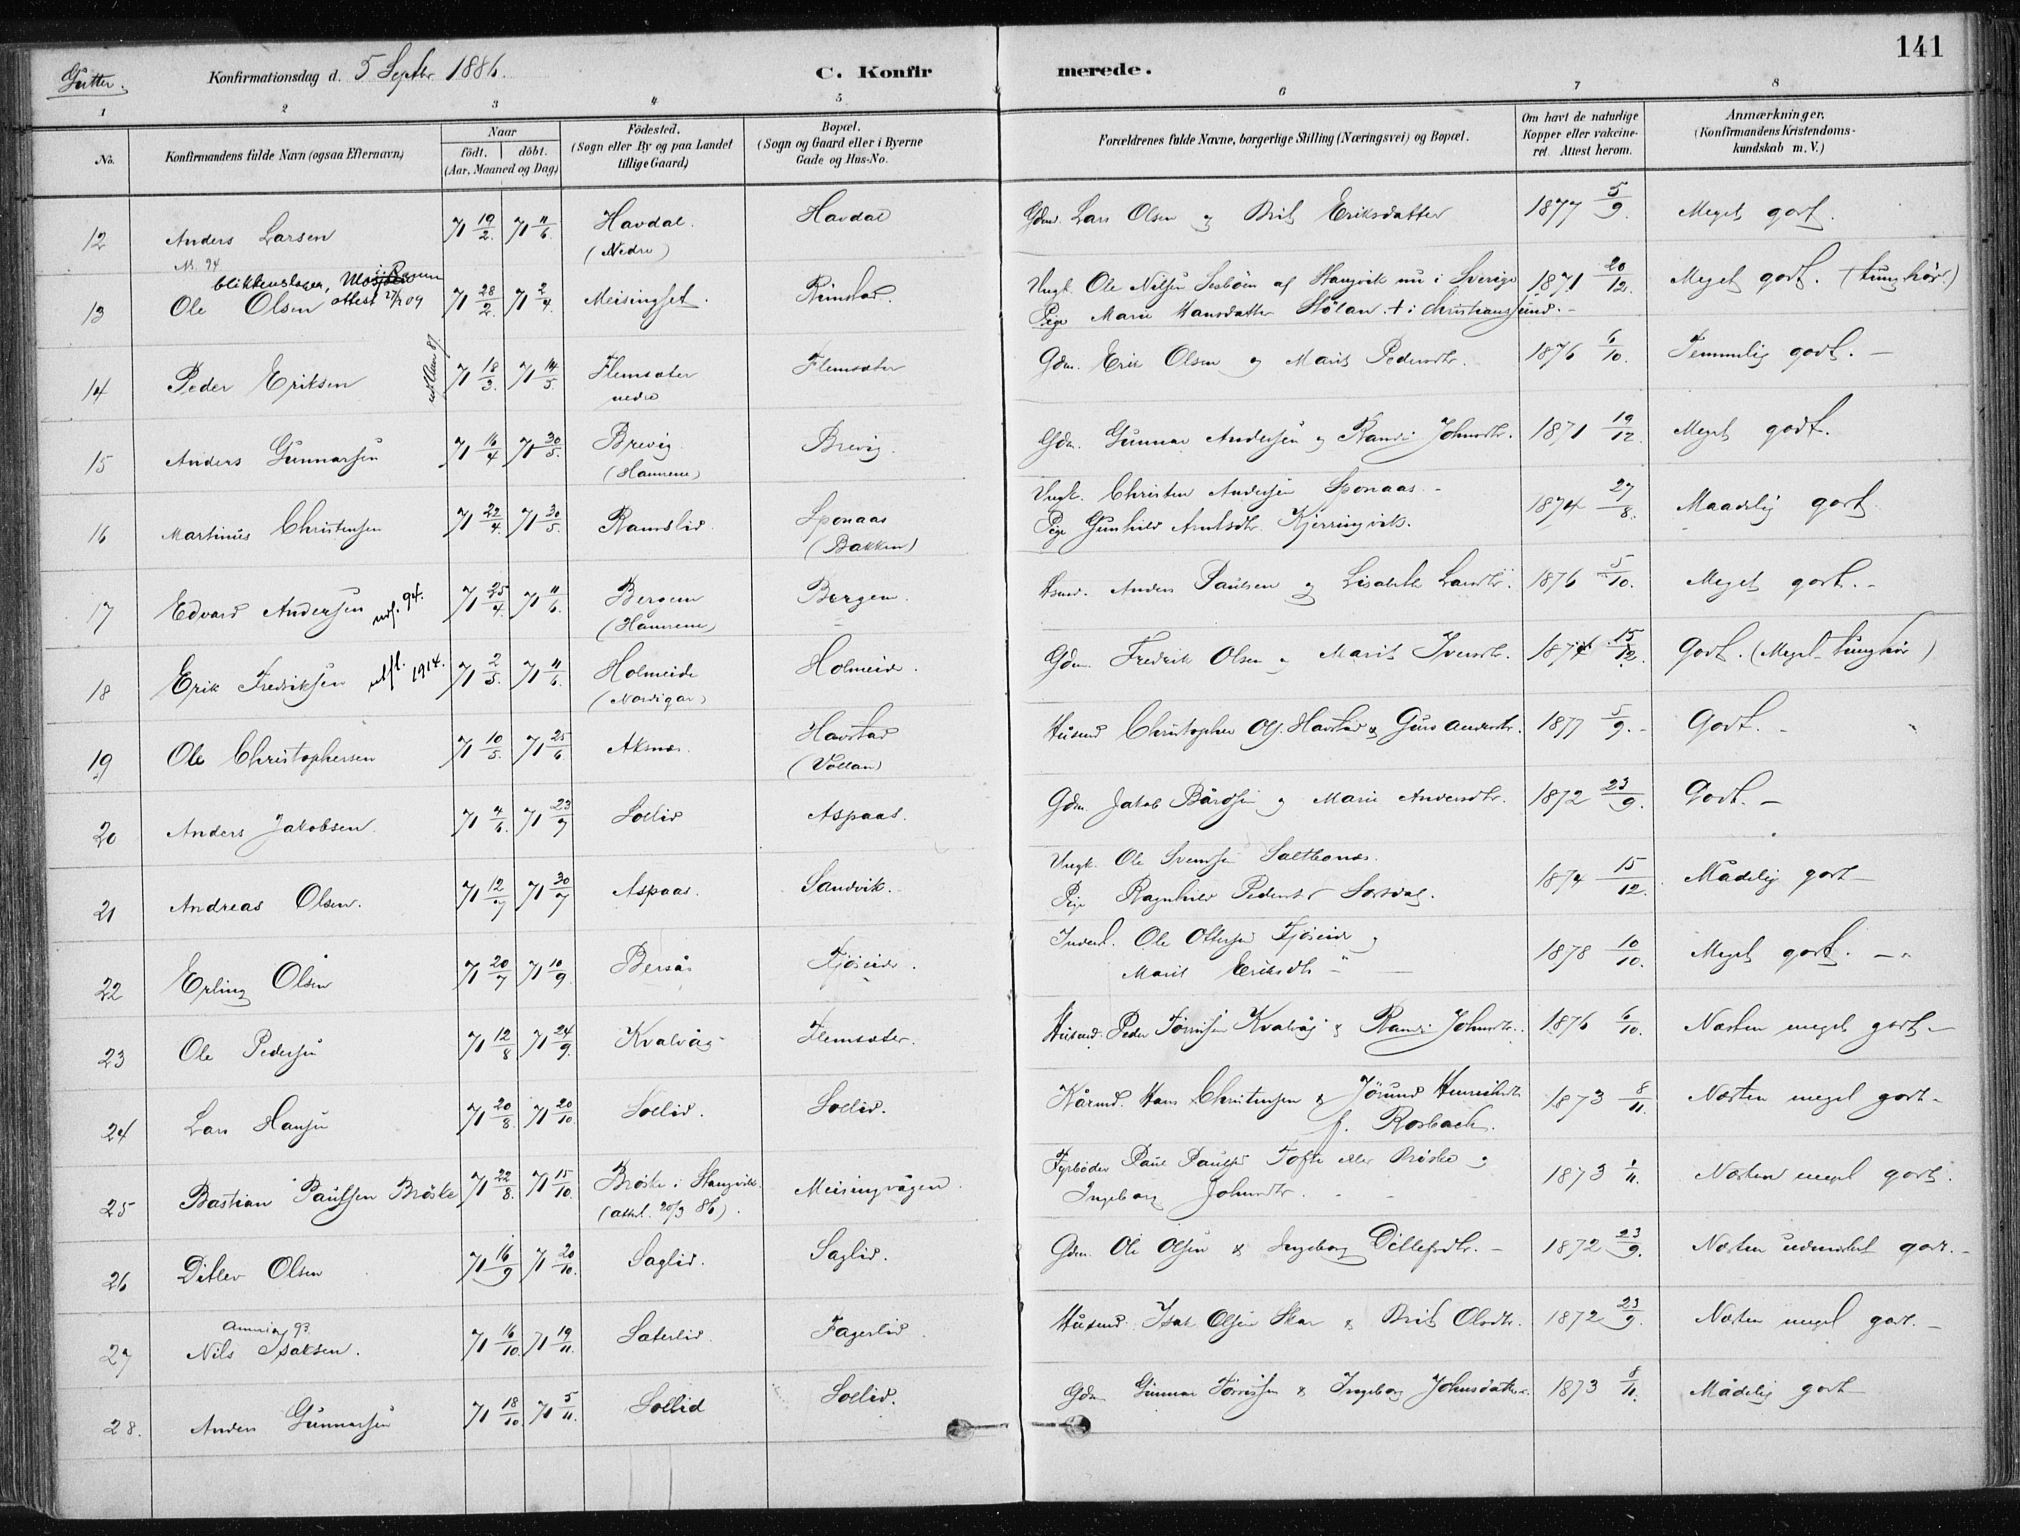 141
Gutter. Konfirmationsdag d. 5 Septbr. 1886. C. Konfirmerede.
1 2 3 4 5 6 7 8
No. Konfirmandens fulde Navn (ogsaa Efternavn) Naar født. døbt. (Aar, Maaned og Dag) Fødested. (Sogn eller By og paa Landet tillige Gaard) Bopæl. (Sogn og Gaard eller i Byerne Gade og Hus-No. Forældrenes fulde Navne, borgerlige Stilling (Næringsvei) og Bopæl. Om havt de naturlige Kopper eller vakcineret. Attest herom. Anmærkninger. (Konfirmandens Kristendomskundskab m. V.)
12 Anders Larsen 71 19/2 71 11/6 Havdal. (Nedre) Havdal Gdm. Lars Olsen og Brit Eriksdatter 1877 5/9. Meget godt.
blikkenslager,
13 Ole Olsen attest 71 28/2 71 2/4. Meisingset. Rimstad. Ungk. Ole Nilsen af Stangvik nu i Sverige 1871 20/12. Meget godt. (tunghør.)
Pige Marie Hansdatter Stølan + i Christianssund. -
14 Peder Eriksen 71 18/3. 71 14/5. Flemsæter nedre Flemsæter Gdm. Erik Olsen og Marit Pedersdtr. 1876 6/10. Temmelig godt. -
15 Anders Gunnarsen 71 16/4 71 30/5. Brevig. (Hamrene) Brevig. Gdm. Gunnar Andersen og Randi Johnsdtr. 1871 19/12. Meget godt.
16 Martinus Christensen 71 22/4. 71 30/5. Ramslid Sponaas (Bakken) Ungk. Christen Andersen Sponaas. - 1874 27/8. Maadelig godt
Pige Gunhild Arntsdtr. Kjerringvik.
17 Edvard Andersen udf. 94. 71 25/4. 71 11/6. Bergem (Hamrene) Bergem. Husmd. Anders Paulsen og Lisabeth Larsdtr. 1876 5/10. Meget godt. -
18 Erik Fredriksen utfl. 1914. 71 2/5. 71 11/6. Holmeide (Nordigard) Holmeide. Gdm. Fredrik Olsen og Marit Iversdtr. 1874 15/12. Godt. (Meget tunghør)
19 Ole Christophersen 71 10/5. 71 25/6. Aksnæs. Havstad (Vollan) Husmd Christopher Ols. Havstad & Guro Andersdtr. 1877 5/9. - Godt. -
20 Anders Jakobsen. 71 4/6. 71 23/7 Sollid Aspaas. Gdm. Jakob Bårdsen og Marie Andersdtr. 1872 23/9. Godt. -
21 Andreas Olsen. 71 12/7 71 30/7 Aspaas. Sandvik. Ungk. Ole Svendsen Saltbonæs. 1874 15/12. Mådelig godt -
Pige Ragnhild Pedersdtr
22 Erling Olsen 71 20/7 71 10/9. Bersås Fjøseide. Inderst. Ole Ottersen Fjøseide og 1878 10/10. Meget godt. -
Marit Eriksdtr
23 Ole Pedersen 71 12/8 71 24/9. Kvalvåg Flemsæter. Husmd. Peder Tørrisen Kvalvåg & Randi Johnsdtr. 1876 6/10. Næsten meget godt -
24 Lars Hansen 71 20/8. 71 20/10. Sollid. Sollid. Kårmd. Hans Christensen & Jørund Henriksdtr f. Rosbach. 1873 8/11. Næsten meget godt -
25 Bastian Paulsen Brøske 71 22/8. 71 15/10. Brøske i Stangvik. (attest. 20/3 86). Meisingvågen. Fyrbøder Paul Paulsen Tofte eller Brøske og 1873 1/11. Næsten meget godt.
Ingeborg Johnsdtr.
26 Ditlev Olsen 71 16/9 71 20/10. Saglid. Saglid. Gdm. Ole Olsen & Ingeborg Ditlefsdtr. - 1872 23/9. Næsten udmærket godt. -
Amerika 93
27 Nils Isaksen. 71 16/10. 71 19/11. Sæterlid. Fagerlid. Husmd. Isak Olsen Skar & Brit Olsdtr. 1872 23/9. Næsten meget godt. -
28. Anders Gunnarsen 71 18/10. 71 5/11. Sollid Sollid. Gdm Gunnar Tørrissen & Ingeborg Johnsdatter. 1873 8/11. Mådelig godt -